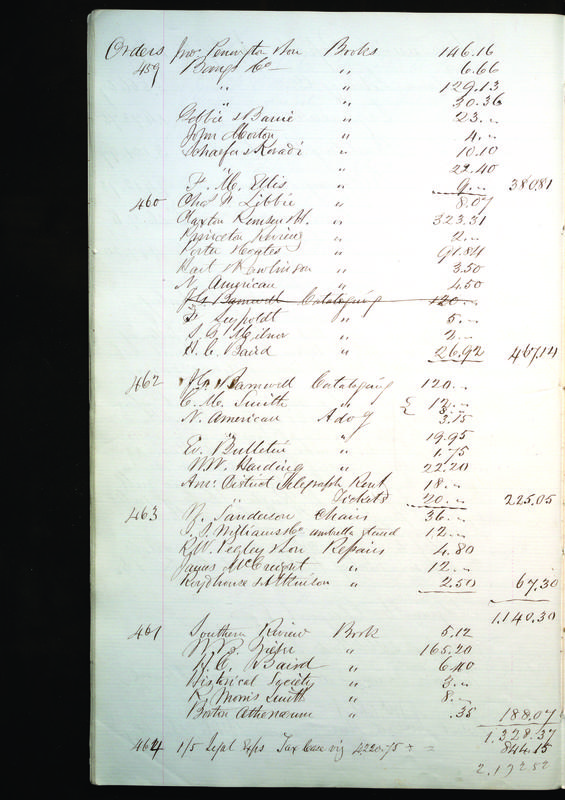 Orders Jno Penington & Son Books 146.16
459 Bangs & Co " 6.66
" " 129.13
" " 30.36
Gebbie & Barrie " 23 "
John Morton " 4 "
Schaefer & Koradi " 10.10
" " 22.40
F. M. Ellis " 9 " 380.81
460 Chas F Libbie " 8.07
Claxton Remsen & H. " 323.31
Princeton Review " 2 "
Porter & Coates " 91.84
Hart & Rawlinson " 3.50
N. American " 4.50
J G Barnwell Cataloging 120 "
F Leypoldt " 5 "
" 2 "
H. C. Baird " 26.92 467.14
462 J G Barnwell Cataloging 120 "
C. M. Smith " 12 "
N. American Adog 3.15
" " 19.95
Ev. Bulletin " 1.75
W. W. Harding " 22.20
Am. District Telegraph Rent 18 "
" Tickets 20 " 225.05
463 Sanderson Chairs 36 "
Williams & Co umbrella stand 12 "
R. W. Pegley & Son Repairs 4.80
James McCreight " 12 "
Roydhouse & Atkinson " 2.50 67.30
1,140.30
461 Southern Review Book 5.12
" 165.20
H. C. Baird " 6.40
Historical Society " 3 "
R. Morris Smith " 8 "
Boston Athenaeum " .35 188.07
1,328.37
464 1/5 Legal Exps Tax Case viz 4220.75 = 844.15
2,172 52